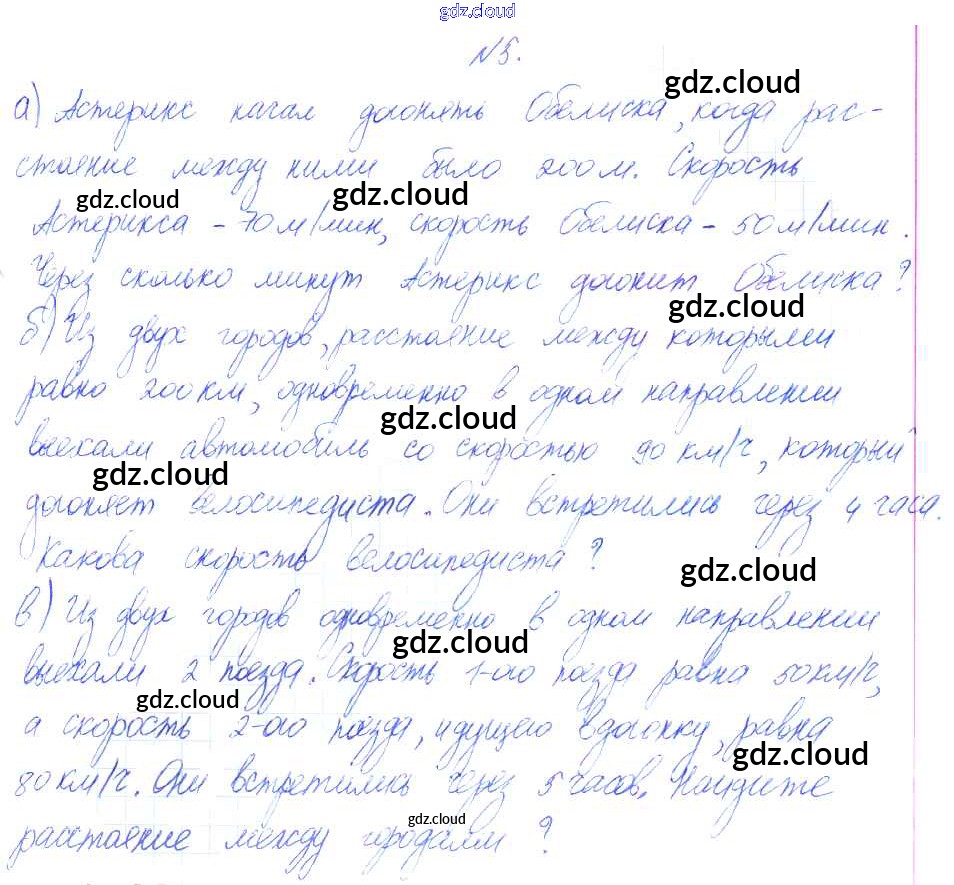 gdz.cloud
№5.
gdz.cloud
а) Астерикс начал догонять Обелиска, когда рас-
стояние между ними было 200 м. Скорость
gdz.cloud gdz.cloud
Астерикса – 70 м/мин, скорость Обелиска – 50 м/мин.
Через сколько минут Астерикс догонит Обелиска?
gdz.cloud
б) Из двух городов, расстояние между которыми
равно 200 км, одновременно в одном направлении
gdz.cloud
выехали автомобиль со скоростью 90 км/ч, который
gdz.cloud
догоняет велосипедиста. Они встретились через 4 часа.
Какова скорость велосипедиста?
gdz.cloud
в) Из двух городов одновременно в одном направлении
gdz.cloud
выехали 2 поезда. Скорость 1-ого поезда равна 50 км/ч,
gdz.cloud
а скорость 2-ого поезда, идущего вдогонку, равна
gdz.cloud
80 км/ч. Они встретились через 5 часов. Найдите
gdz.cloud
расстояние между городами?